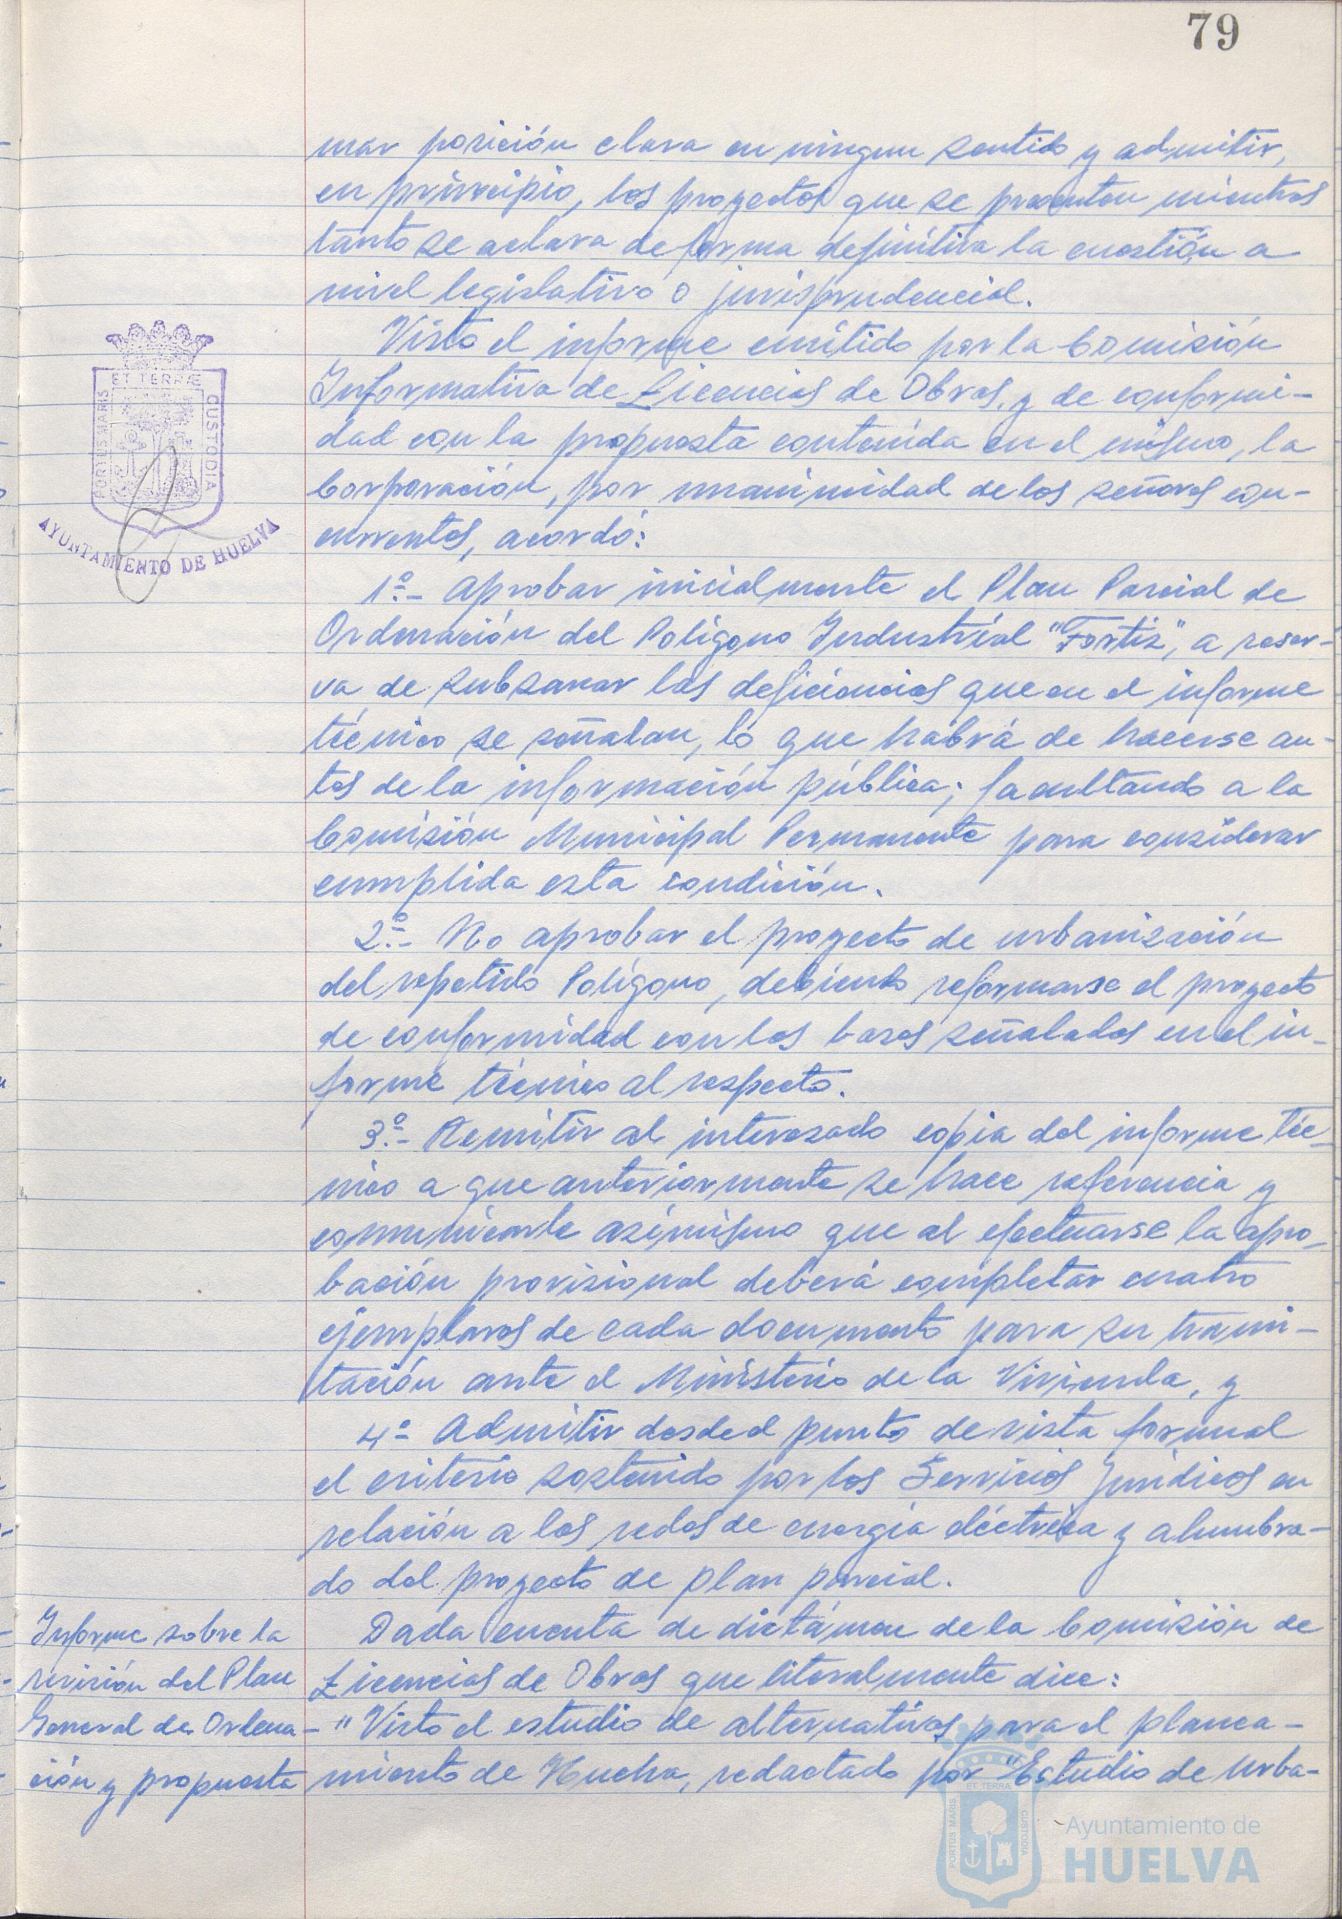 79
mar posición clara en ningun sentido y admitir,
en principio, los proyectos que se presenten mientras
tanto se aclara de forma definitiva la cuestión a
nivel legislativo o jurisprudencial.
Visto el informe emitido por la Comisión
Informativa de Licencias de Obras, y de conformi-
dad con la propuesta contenida en el mismo, la
Corporación, por unanimidad de los señores con-
currentes, acordó:
1º.- Aprobar inicialmente el Plan Parcial de
Ordenación del Polígono Industrial "Fortiz", a reser-
va de subsanar las deficiencias que en el informe
técnico se señalan, lo que habrá de hacerse an-
tes de la información pública; facultando a la
Comisión Municipal Permanente para considerar
cumplida esta condición.
2º.- No aprobar el proyecto de urbanización
del repetido Polígono, debiendo reformarse el proyecto
de conformidad con las bases señaladas en el in-
forme técnico al respecto.
3º.- Remitir al interesado copia del informe téc-
nico a que anteriormente se hace referencia y
comunicarle asímismo que al efectuarse la apro-
bación provisional deberá completar cuatro
ejemplares de cada documento para su trami-
tación ante el Ministerio de la Vivienda, y
4º Admitir desde el punto de vista formal
el criterio sostenido por los Servicios Jurídicos en
relación a las redes de energía eléctrica y alumbra-
do del proyecto de plan parcial.
Informe sobre la
revisión del Plan
General de Ordena-
ción y propuesta
Dada cuenta de dictámen de la Comisión de
Licencias de Obras que literalmente dice:
"Visto el estudio de alternativas para el planea-
miento de Huelva, redactado por "Estudio de Urba-
ET TERRÆ
PORTUS MARIS
CUSTODIA
AYUNTAMIENTO DE HUELVA
ET TERRA
PORTUS MARIS
CUSTODIA
Ayuntamiento de
HUELVA